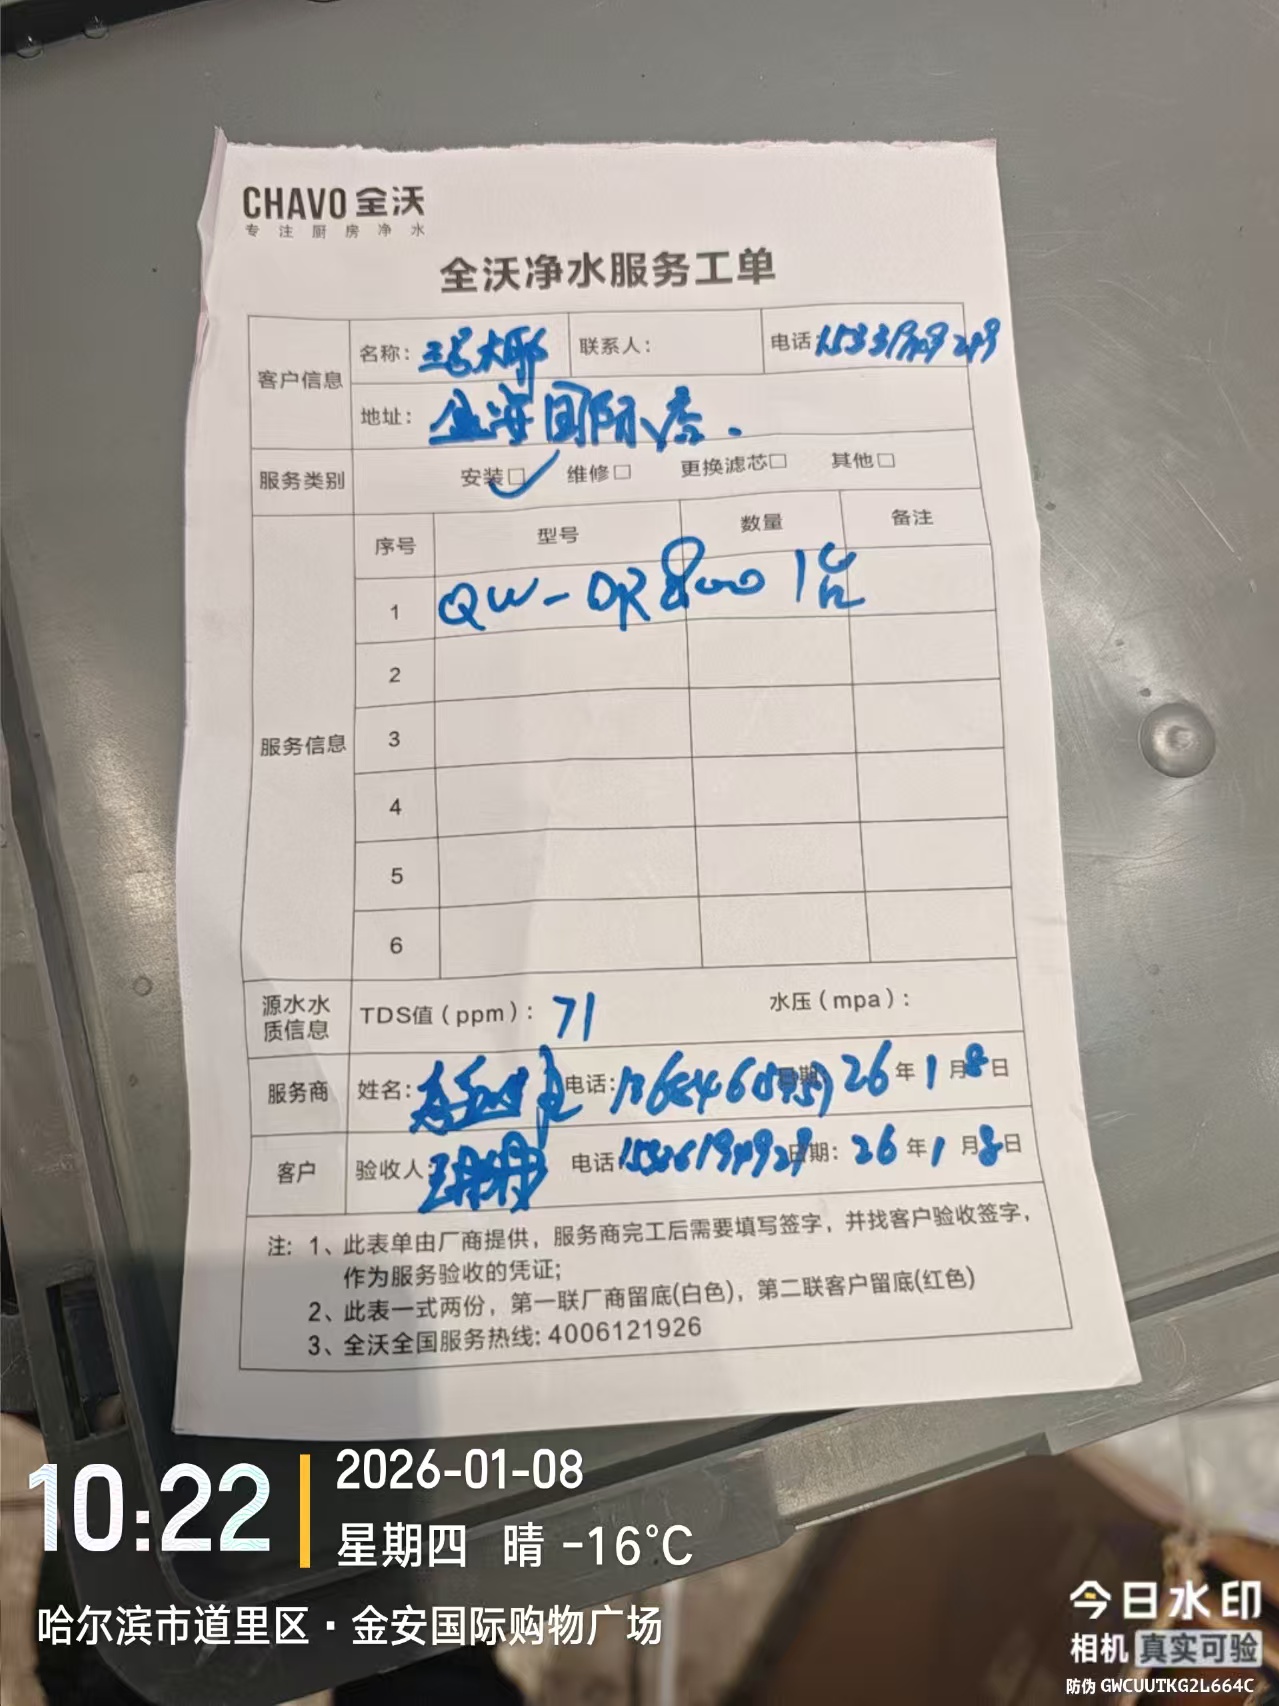 CHAVO 全沃
专注厨房净水
全沃净水服务工单
客户信息 名称： 联系人： 电话：
地址：金安国际店.
服务类别 安装□✓ 维修□ 更换滤芯□ 其他□
服务信息 序号 型号 数量 备注
1 QW-DR800 1台
2
3
4
5
6
源水水质信息 TDS值（ppm）：71 水压（mpa）：
服务商 姓名： 电话： 日期：26年1月8日
客户 验收人： 电话： 日期：26年1月8日
注：1、此表单由厂商提供，服务商完工后需要填写签字，并找客户验收签字，
作为服务验收的凭证；
2、此表一式两份，第一联厂商留底(白色)，第二联客户留底(红色)
3、全沃全国服务热线：4006121926
10:22
2026-01-08
星期四 晴 -16°C
哈尔滨市道里区·金安国际购物广场
今日水印
相机 真实可验
防伪 GWCUUTKG2L664C